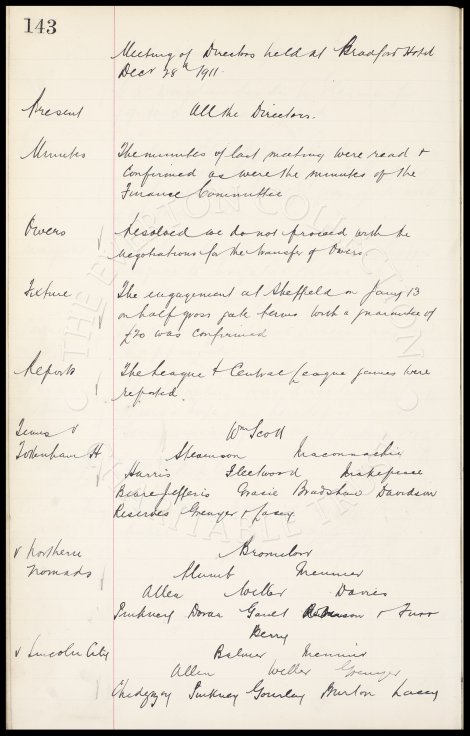 143
Meeting of Directors held at Bradford Hotel
Decr 28th 1911.
Present All the Directors.
Minutes The minutes of last meeting were read &
confirmed as were the minutes of the
Finance Committee
Owers Resolved we do not proceed with the
negotiations for the transfer of Owers
Fixture The engagement at Sheffield on Jany 13
on half gross gate terms with a guarantee of
£20 was confirmed
Reports The League & Central League games were
reported.
Teams v Wm Scott
Tottenham H Stevenson Maconnachie
Harris Fleetwood Makepeace
Beare Jefferis Gracie Bradshaw Davidson
Reserves Grenyer & Lacey
v Northern Bromilow
Nomads Meunier
Allen Weller Davies
Pinkney Doran Gault Robinson &
Berry
v Lincoln City Balmer Meunier
Allen Weller Grenyer
Chedgzoy Pinkney Gourlay Burton Lacey
THE EVERTON COLLECTION
CHARITABLE TRUST